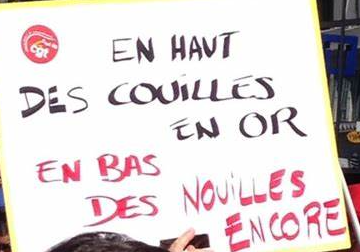 cgt
EN HAUT
DES COUILLES
EN OR
EN BAS
DES NOUILLES
ENCORE